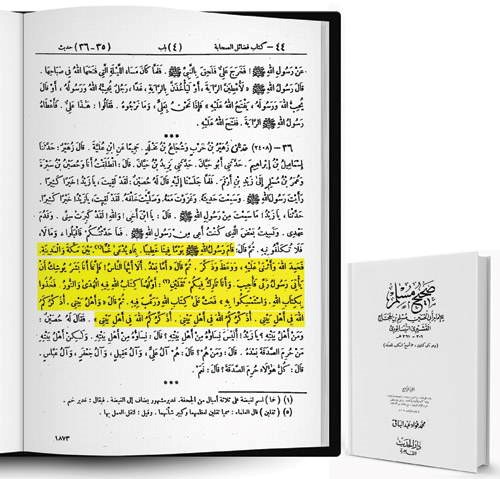 ٤٤ - كتاب فضائل الصحابة (٤) باب (٣٥ - ٣٦) حديث
عَنْ رَسُولِ اللهِ ﷺ! فَخَرَجَ عَلِيٌّ فَلَحِقَ بِالنَّبِيِّ ﷺ. فَلَمَّا كَانَ مَسَاءُ اللَّيْلَةِ الَّتِي فَتَحَهَا اللهُ فِي صَبَاحِهَا.
قَالَ رَسُولُ اللهِ ﷺ «لَأُعْطِيَنَّ الرَّايَةَ، أَوْ لَيَأْخُذَنَّ بِالرَّايَةِ، غَدًا، رَجُلٌ يُحِبُّهُ اللهُ وَرَسُولُهُ، أَوْ قَالَ
يُحِبُّ اللهَ وَرَسُولَهُ، يَفْتَحُ اللهُ عَلَيْهِ» فَإِذَا نَحْنُ بِعَلِيٍّ، وَمَا نَرْجُوهُ. فَقَالُوا: هٰذَا عَلِيٌّ. فَأَعْطَاهُ
رَسُولُ اللهِ ﷺ الرَّايَةَ. فَفَتَحَ اللهُ عَلَيْهِ.
***
٣٦ - (٢٤٠٨) حدثني زُهَيْرُ بْنُ حَرْبٍ وَشُجَاعُ بْنُ مَخْلَدٍ. جَمِيعًا عَنِ ابْنِ عُلَيَّةَ. قَالَ زُهَيْرٌ: حَدَّثَنَا
إِسْمَاعِيلُ بْنُ إِبْرَاهِيمَ. حَدَّثَنِي أَبُو حَيَّانَ. حَدَّثَنِي يَزِيدُ بْنُ حَيَّانَ. قَالَ: انْطَلَقْتُ أَنَا وَحُصَيْنُ بْنُ سَبْرَةَ
وَعُمَرُ بْنُ مُسْلِمٍ إِلَى زَيْدِ بْنِ أَرْقَمَ. فَلَمَّا جَلَسْنَا إِلَيْهِ قَالَ لَهُ حُصَيْنٌ: لَقَدْ لَقِيتَ، يَا زَيْدُ! خَيْرًا كَثِيرًا.
رَأَيْتَ رَسُولَ اللهِ ﷺ. وَسَمِعْتَ حَدِيثَهُ. وَغَزَوْتَ مَعَهُ. وَصَلَّيْتَ خَلْفَهُ. لَقَدْ لَقِيتَ، يَا زَيْدُ! خَيْرًا كَثِيرًا.
حَدِّثْنَا، يَا زَيْدُ! مَا سَمِعْتَ مِنْ رَسُولِ اللهِ ﷺ. قَالَ: يَا ابْنَ أَخِي! وَاللهِ! لَقَدْ كَبِرَتْ سِنِّي. وَقَدُمَ
عَهْدِي. وَنَسِيتُ بَعْضَ الَّذِي كُنْتُ أَعِي مِنْ رَسُولِ اللهِ ﷺ. فَمَا حَدَّثْتُكُمْ فَاقْبَلُوا. وَمَا لَا،
فَلَا تُكَلِّفُونِيهِ. ثُمَّ قَالَ: قَامَ رَسُولُ اللهِ ﷺ يَوْمًا فِينَا خَطِيبًا. بِمَاءٍ يُدْعَى خُمًّا(١). بَيْنَ مَكَّةَ وَالْمَدِينَةِ.
فَحَمِدَ اللهَ وَأَثْنَى عَلَيْهِ. وَوَعَظَ وَذَكَّرَ. ثُمَّ قَالَ «أَمَّا بَعْدُ. أَلَا أَيُّهَا النَّاسُ! فَإِنَّمَا أَنَا بَشَرٌ يُوشِكُ أَنْ
يَأْتِيَ رَسُولُ رَبِّي فَأُجِيبَ. وَأَنَا تَارِكٌ فِيكُمْ ثَقَلَيْنِ(٥): أَوَّلُهُمَا كِتَابُ اللهِ فِيهِ الْهُدَى وَالنُّورُ. فَخُذُوا
بِكِتَابِ اللهِ. وَاسْتَمْسِكُوا بِهِ» فَحَثَّ عَلَى كِتَابِ اللهِ وَرَغَّبَ فِيهِ. ثُمَّ قَالَ «وَأَهْلُ بَيْتِي. أُذَكِّرُكُمُ
اللهَ فِي أَهْلِ بَيْتِي. أُذَكِّرُكُمُ اللهَ فِي أَهْلِ بَيْتِي. أُذَكِّرُكُمُ اللهَ فِي أَهْلِ بَيْتِي». فَقَالَ لَهُ حُصَيْنٌ:
وَمَنْ أَهْلُ بَيْتِهِ؟ يَا زَيْدُ! أَلَيْسَ نِسَاؤُهُ مِنْ أَهْلِ بَيْتِهِ؟ قَالَ: نِسَاؤُهُ مِنْ أَهْلِ بَيْتِهِ. وَلٰكِنْ أَهْلُ بَيْتِهِ
مَنْ حُرِمَ الصَّدَقَةَ بَعْدَهُ. قَالَ: وَمَنْ هُمْ؟ قَالَ: هُمْ آلُ عَلِيٍّ، وَآلُ عَقِيلٍ، وَآلُ جَعْفَرٍ، وَآلُ عَبَّاسٍ.
قَالَ: كُلُّ هٰؤُلَاءِ حُرِمَ الصَّدَقَةَ؟ قَالَ: نَعَمْ.
***
(١) (خما) اسم لغيضة على ثلاثة أميال من الجحفة. غدير مشهور يضاف إلى الغيضة. فيقال: غدير خم.
(٥) (ثقلين) قال العلماء: سميا ثقلين لعظمهما وكبير شأنهما. وقيل: لثقل العمل بها.
١٨٧٣
صحيح مسلم
للإمام أبي الحسين مسلم بن الحجاج
القشيري النيسابوري
محمد فؤاد عبد الباقي
دار الحديث
القاهرة